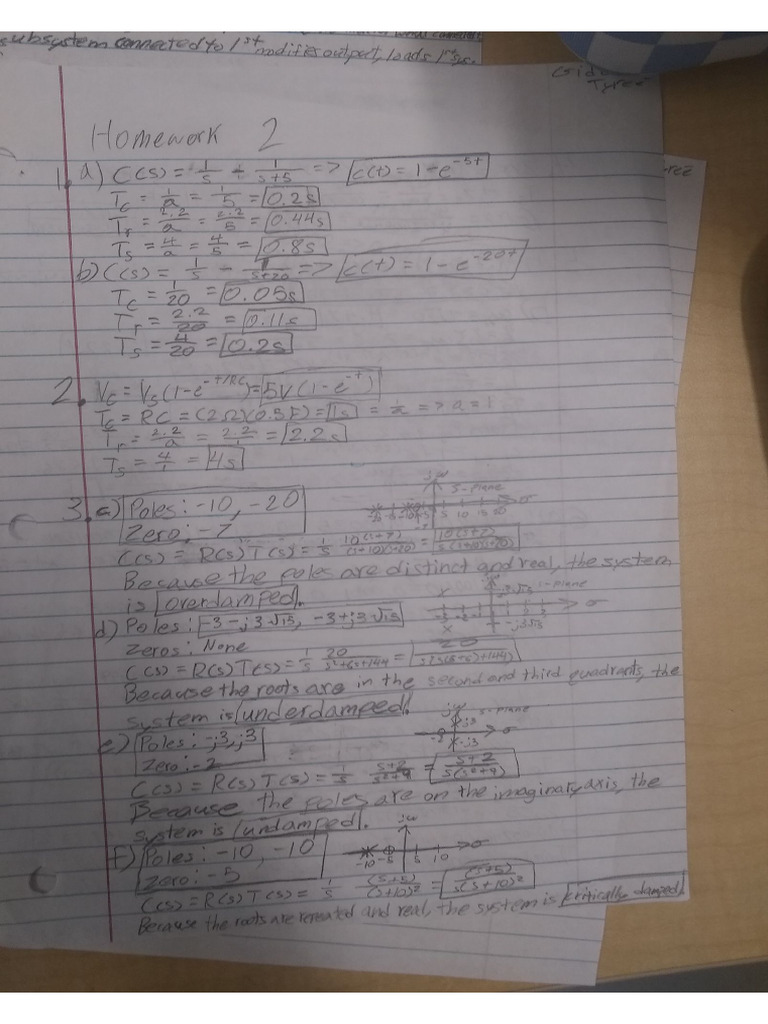 subsystem connected to 1st modifies output, loads 1st sys.
Homework 2
1. a) C(s) = 1/s + 1/(s+5) => c(t) = 1 - e^-5t
Tc = 1/a = 1/5 = 0.2s
Tr = 2.2/a = 2.2/5 = 0.44s
Ts = 4/a = 4/5 = 0.8s
b) C(s) = 1/s - 1/(s+20) => c(t) = 1 - e^-20t
Tc = 1/20 = 0.05s
Tr = 2.2/20 = 0.11s
Ts = 4/20 = 0.2s
2. Vc = Vs(1-e^-t/RC) = 5V(1-e^-t)
Tc = RC = (2Ω)(0.5F) = 1s = 1/a => a = 1
Tr = 2.2/a = 2.2/1 = 2.2s
Ts = 4/1 = 4s
3. a) Poles: -10, -20
Zero: -7
jω s-plane σ
C(s) = R(s)T(s) = 1/s 10(s+7)/(s+10)(s+20) = 10(s+7)/s(s+10)(s+20)
Because the poles are distinct and real, the system
is overdamped.
d) Poles: -3-j3√15, -3+j3√15
Zeros: None
C(s) = R(s)T(s) = 1/s 20/(s²+6s+144) =
Because the roots are in the second and third quadrants, the
system is underdamped.
e) Poles: -j3, j3
Zero: -2
jω s-plane j3 -j3 -2 σ
C(s) = R(s)T(s) = 1/s (s+2)/(s²+9) = (s+2)/s(s²+9)
Because the poles are on the imaginary axis, the
system is undamped.
f) Poles: -10, -10
Zero: -5
jω σ -10 -5 5 10
C(s) = R(s)T(s) = 1/s (s+5)/(s+10)² = (s+5)/s(s+10)²
Because the roots are repeated and real, the system is critically damped.